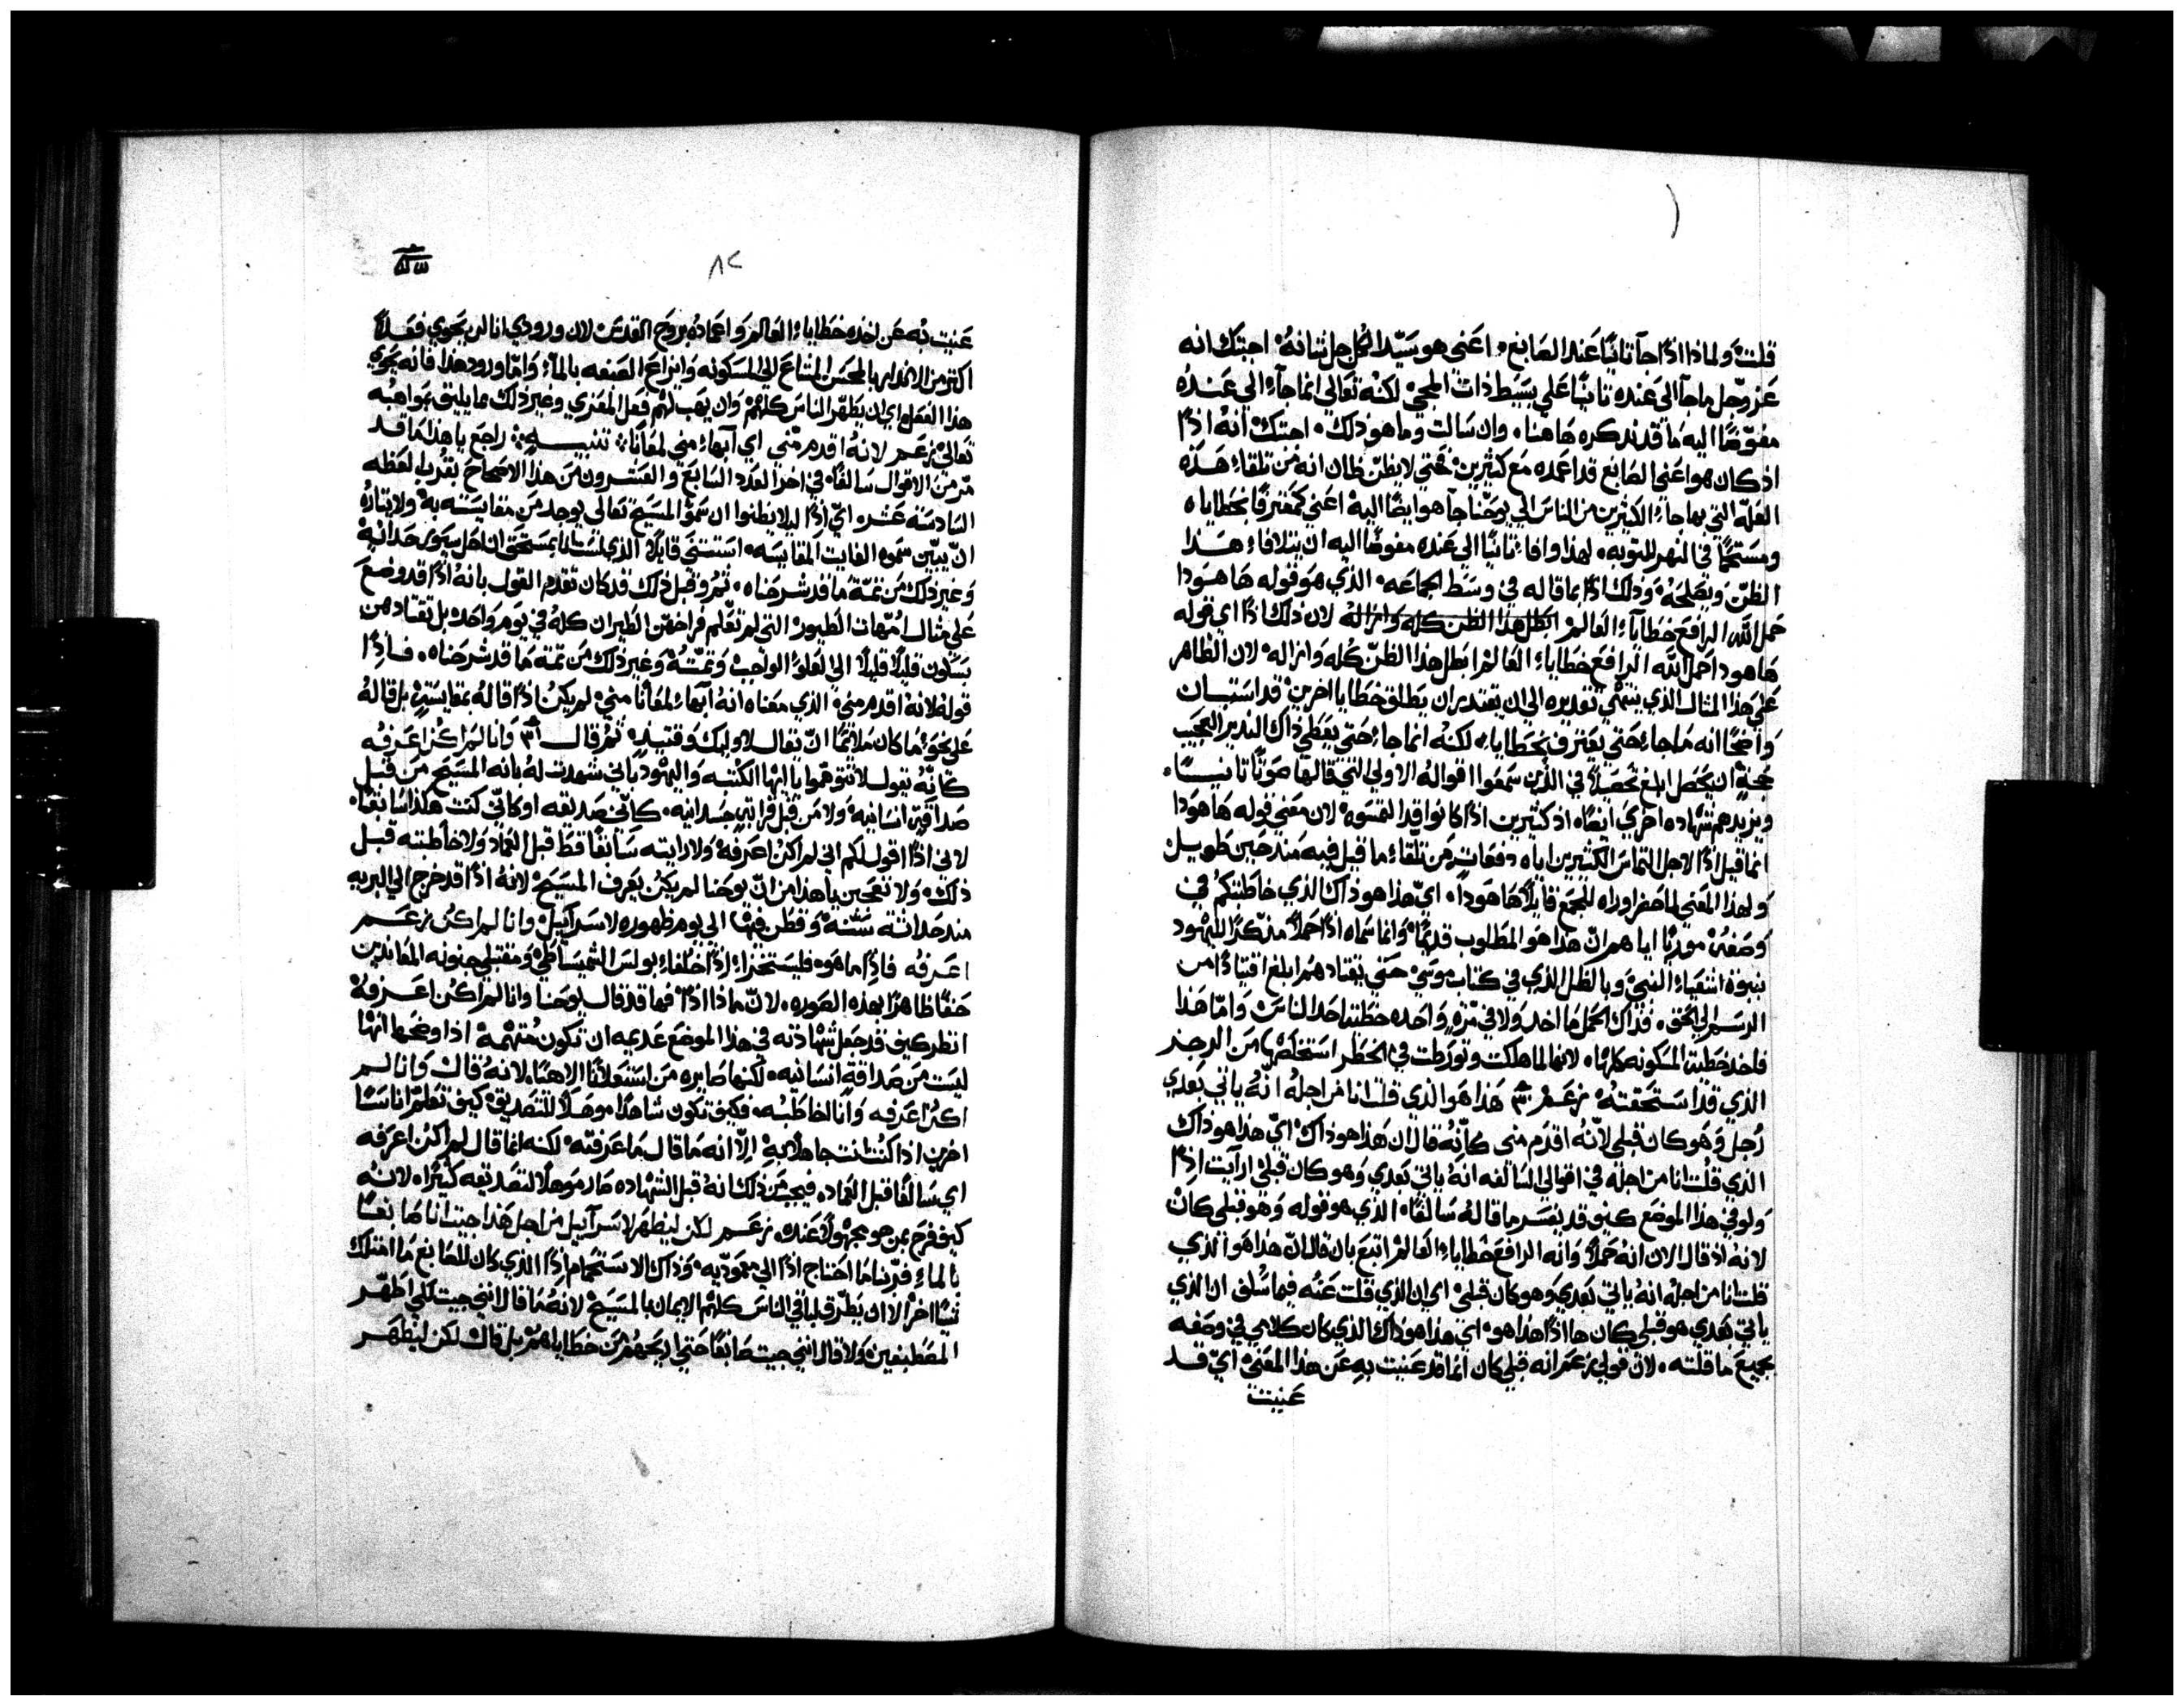 قلتَ ولماذا اذًا جآ ثانيًا عند الصابغ، اعني هو سيّد الكل جل ثنائهُ اجبتك انه
عَز وجّل ما جآ الى عنده ثانيًا على بسَيط ذات المجي، لكنهُ تعالى انما جآء الى عندهُ
مفوّضًا اليه ما قد نذكره هَاهنا، وان سَالت وما هو ذلك، اجبتك انهُ اذًا
اذ كان هو اعني الصابغ قد اعمده مَع كثيرين، حتي لا يظنّ ظان انه من تلقاء هَذه
العلّة التي بها جاء الكثيرين من الناس الي يوحَنا جآ هو ايضًا اليه اعني كمعترفًا بخطاياه
ومستحمًا في النهر للتوبه، لهذا وافاء ثانيًا الي عنده مفوضًا اليه ان يتلافاء هَذا
الظنّ ويصلحَهُ وَذلك اذًا بما قاله في وسَط الجماعَه، الذي هوَ قوله هَا هوَذا
حمل الله الرافع خطاياء العالم ابطل هذا الظن كله وازاله لان ذلك اذًا اي قوله
هَا هوذا حمل الله الرافع خطاياء العالم ابطل هذا الظنّ كُله وازاله، لان الظاهر
عَلى هَذا المثال الذي ينتمي تقديره الى ان يقتدر ان يطلق خطايا اخرين، قد استبان
وَاضحًا انه مَا جاء حَتي يعترف بخَطاياه، لكنهُ انما جاء حَتي يعَطي ذاك النذير العجَيب
حُجةً ان يحَصل ابلغ تحصَيلاً في الذين سَمعوا اقوالهُ الاولي التي قالها صَوتًا ثانيـًا،
ويزيدهم شهَاده اخري ايضًا، اذ كثيرين اذًا كانوا قد التمسَوه لان معَني قوله هَا هوَذا
انما قيل اذًا لاجل التماس الكثيرين اياه دفعَات من تلقاء ما قيل فيه منذ حَين طويل
وَلهذا المعَني لما حضر اوراه للجَمع قايلاً هَا هوَذا، ايّ هذا هو ذاك الذي خاطبتكم في
وَصفهُ موريًا اياهم انّ هَذا هوَ المطلوب قديمًا، وَانما سَماه اذًا حَملاً مذكرًا لليهُود
بنبوة اشعَياء النبيّ وبالظل الذي في كتاب موسَي، حَتي يقتادهم ابلغ اقتيادًا من
الرسَم الي الحَق، فذاك الحَمل مَا اخذ ولا في مرّةٍ وَاحَده خطيّة احَد الناسَ، وَامّا هَذا
فاخذ خطيّة المسَكونه كلها، لانها لما هلكت وتورّطت في الخطَر استخلصَها مَن الرجز
الذي قد استحَقتهُ، زعَم هَذا هَو الذي قلت انا مَن اجلهُ انّهُ ياتي بعَدي
رُجل وَهوَ كان قبلي لانّهُ اقدَم مني كانّهُ قال ان هَذا هو ذاك، ايّ هذا هو ذاك
الذي قلتُ انا من اجله في اقوالي السَالفه انهُ ياتي بعَدي وَهو كان قبلي، ارايت اذًا
وَلو في هذا الموضع كيف قد يفسَر ما قالهُ سَالفًا، الذي هو قوله وَهو قبلي كان
لانهُ اذ قال الان انهُ حَملاً وَانه الرافع خطاياء العالم، اتبع بان قال انّ هذا هَو الذي
قلت انا من اجله انهُ ياتي بَعدي وَهو كان قبلي، اي ان الذي قلت عَنه فيما سَلف ان الذي
ياتي بَعدي هو قبلي كان هَا اذًا هذا هو، اي هذا هو ذاك الذي كان كلامي في وصفه
بجميع ما قلته، لان قولي زعَم انه قبلي كان انما قد عَنيت بهِ عَن هذا المعَني، ايّ قـد
عَنيت
٨٢
عَنيت به عَن اخذه خطاياء العَالم وَاعمَادهُ بروح القدسَ، لان ورودي انا لن يحَوي فعَـلاً
اكثر من الانذار بالمحَسَن المتاع الى المسَكونه وَايراع الصَبغه بالمآء، وَامّا ورود هَذا فانه يحَوي
هذا الفعَل اي ان يطهّر الناس كلهُم، وَان يهَب لهُم فعَل المعَزي وغير ذلك مَا يليق بموَاهبُه
تعَالى، زعَم لانهُ اقدم منّي اي ابهاء مني لمعَانًا، تنبيـه راجع يا هَذا مَا قد
مرّ من الاقوال سَالفًا، في اخر العَدد السَابع والعشـرون مَن هذا الاصحَاح بقُرب لفظه
السَادسَه عَشر، ايّ اذًا ليلا يظنوا ان سمَوّ المسَيح تعَالى يوجد من مقايسَته به، ولايثارهُ
انّ يبيّن سَموه الفايت المقايسَه، استثني قايلاً الذي لسَت انا بمسَتحق ان احَل سيور حَذائه
وَغير ذلك مَن تتمّة مَا قد شرحَناه، ثمّ وقبل ذلك قد كان تقدم القول بانهُ اذًا قد وضع
عَلي مثال امّهات الطيور، التي لم تعَلّم فراخَهن الطيران كلهُ في يوَم وَاحَد، بل تقتادهن
بسَكون قليلاً قليلاً الي العلوّ الواجب وتمّتهُ وَغير ذلك من تتمّة مَا قد شرحَناه، فـاذًا
قولهُ لانهُ اقدم مني، الذي معَناه انهُ ابهاء لمعَانًا مني، لم يكن اذًا قالهُ بمقايسَتهِ، بل قالهُ
عَلي نحَو مَا كان ملايمًا انّ يقال لاوليك وقتيذٍ، ثمّ قال وَانا لم اكن اعَرفه
كانّهُ يقول لا تتوهّموا يا ايّها الكتبه وَاليهُود باني شهدت لهُ بانه المسَيح من قبل
صَداقةٍ انسَانيه وَلا مَن قبل قرابةٍ جسَدانيه، كاني صَديقه اوكاني كنت هكذا سَابقًا،
لاني اذًا اقول لكم اني لم اكن اعَرفهُ وَلا رايته سَابقًا قطّ قبل العماد، وَلا خاطبته قبل
ذلك، وَلا تعَجبن يا هَذا من انّ يوحَنا لم يكن يعَرف المسَيح، لانهُ اذًا قد خرج الي البريه
منذ حَداثته وَقطن فيهَا الي يوم ظهوره لاسَرآييل، وانا لم اكن زعَـم
اعَرفه فاذًا ما هَوه، فليسَتخزاء اذًا خلفاء بولس الشميسَاطي، ومقتبلي جنونه المعَاندين
حَقًا ظاهرًا بهذه الصَوره، لانّ ماذا اذًا، فهما قد قال يوحَنا وانا لم اكن اعَـرفهُ
انظر كيف قد جعَل شهادته في هذا الموضع عَديمه ان تكون مُتهمَه، اذا وضحَها انهّا
ليسَت من صَداقةٍ انسَانيه، لكنها صَايره مَن اسَتعَلانًا الاهيًا، لانهُ قال وَانا لـم
اكن اعَرفه وَانا الخاطبه، فكيف تكون شاهدًا موهَلاً للتصَديق، كيف تعَلّم اناسًا
اخرين اذا كنت انت جاهلاً به، الّا انه مَا قال مَا عَرفته، لكنه انما قال لم اكن اعرَفه
اي سَالفًا قبل العماده، فيجب من ذلك انهُ قبل الشهاده صَار موهَلاً لتصَديقه كثيرًا، لانـه
كيف فرح بمن هو مجهُولاً عَنده، زعَـم لكن ليظهر لاسَرآييل من اجل هذا جيت انا صَابغًا
بالماء، فربنا مَا احتاج اذًا الي معموديه، وَذاك الاسَتحَمام اذًا الذي كان للصَابغ مَا امتلك
شيًا اخر الا ان يطرّق لباقي الناسَ كلهُم الايمان بالمسَيح، لانهُ مَا قال انني جيت لكي اطهّـر
المصَطبغين، وَلا قال انني جيت صَابغًا حَتي اريحَهُم مَن خطاياهُم، بل قال لكن ليظهَـر